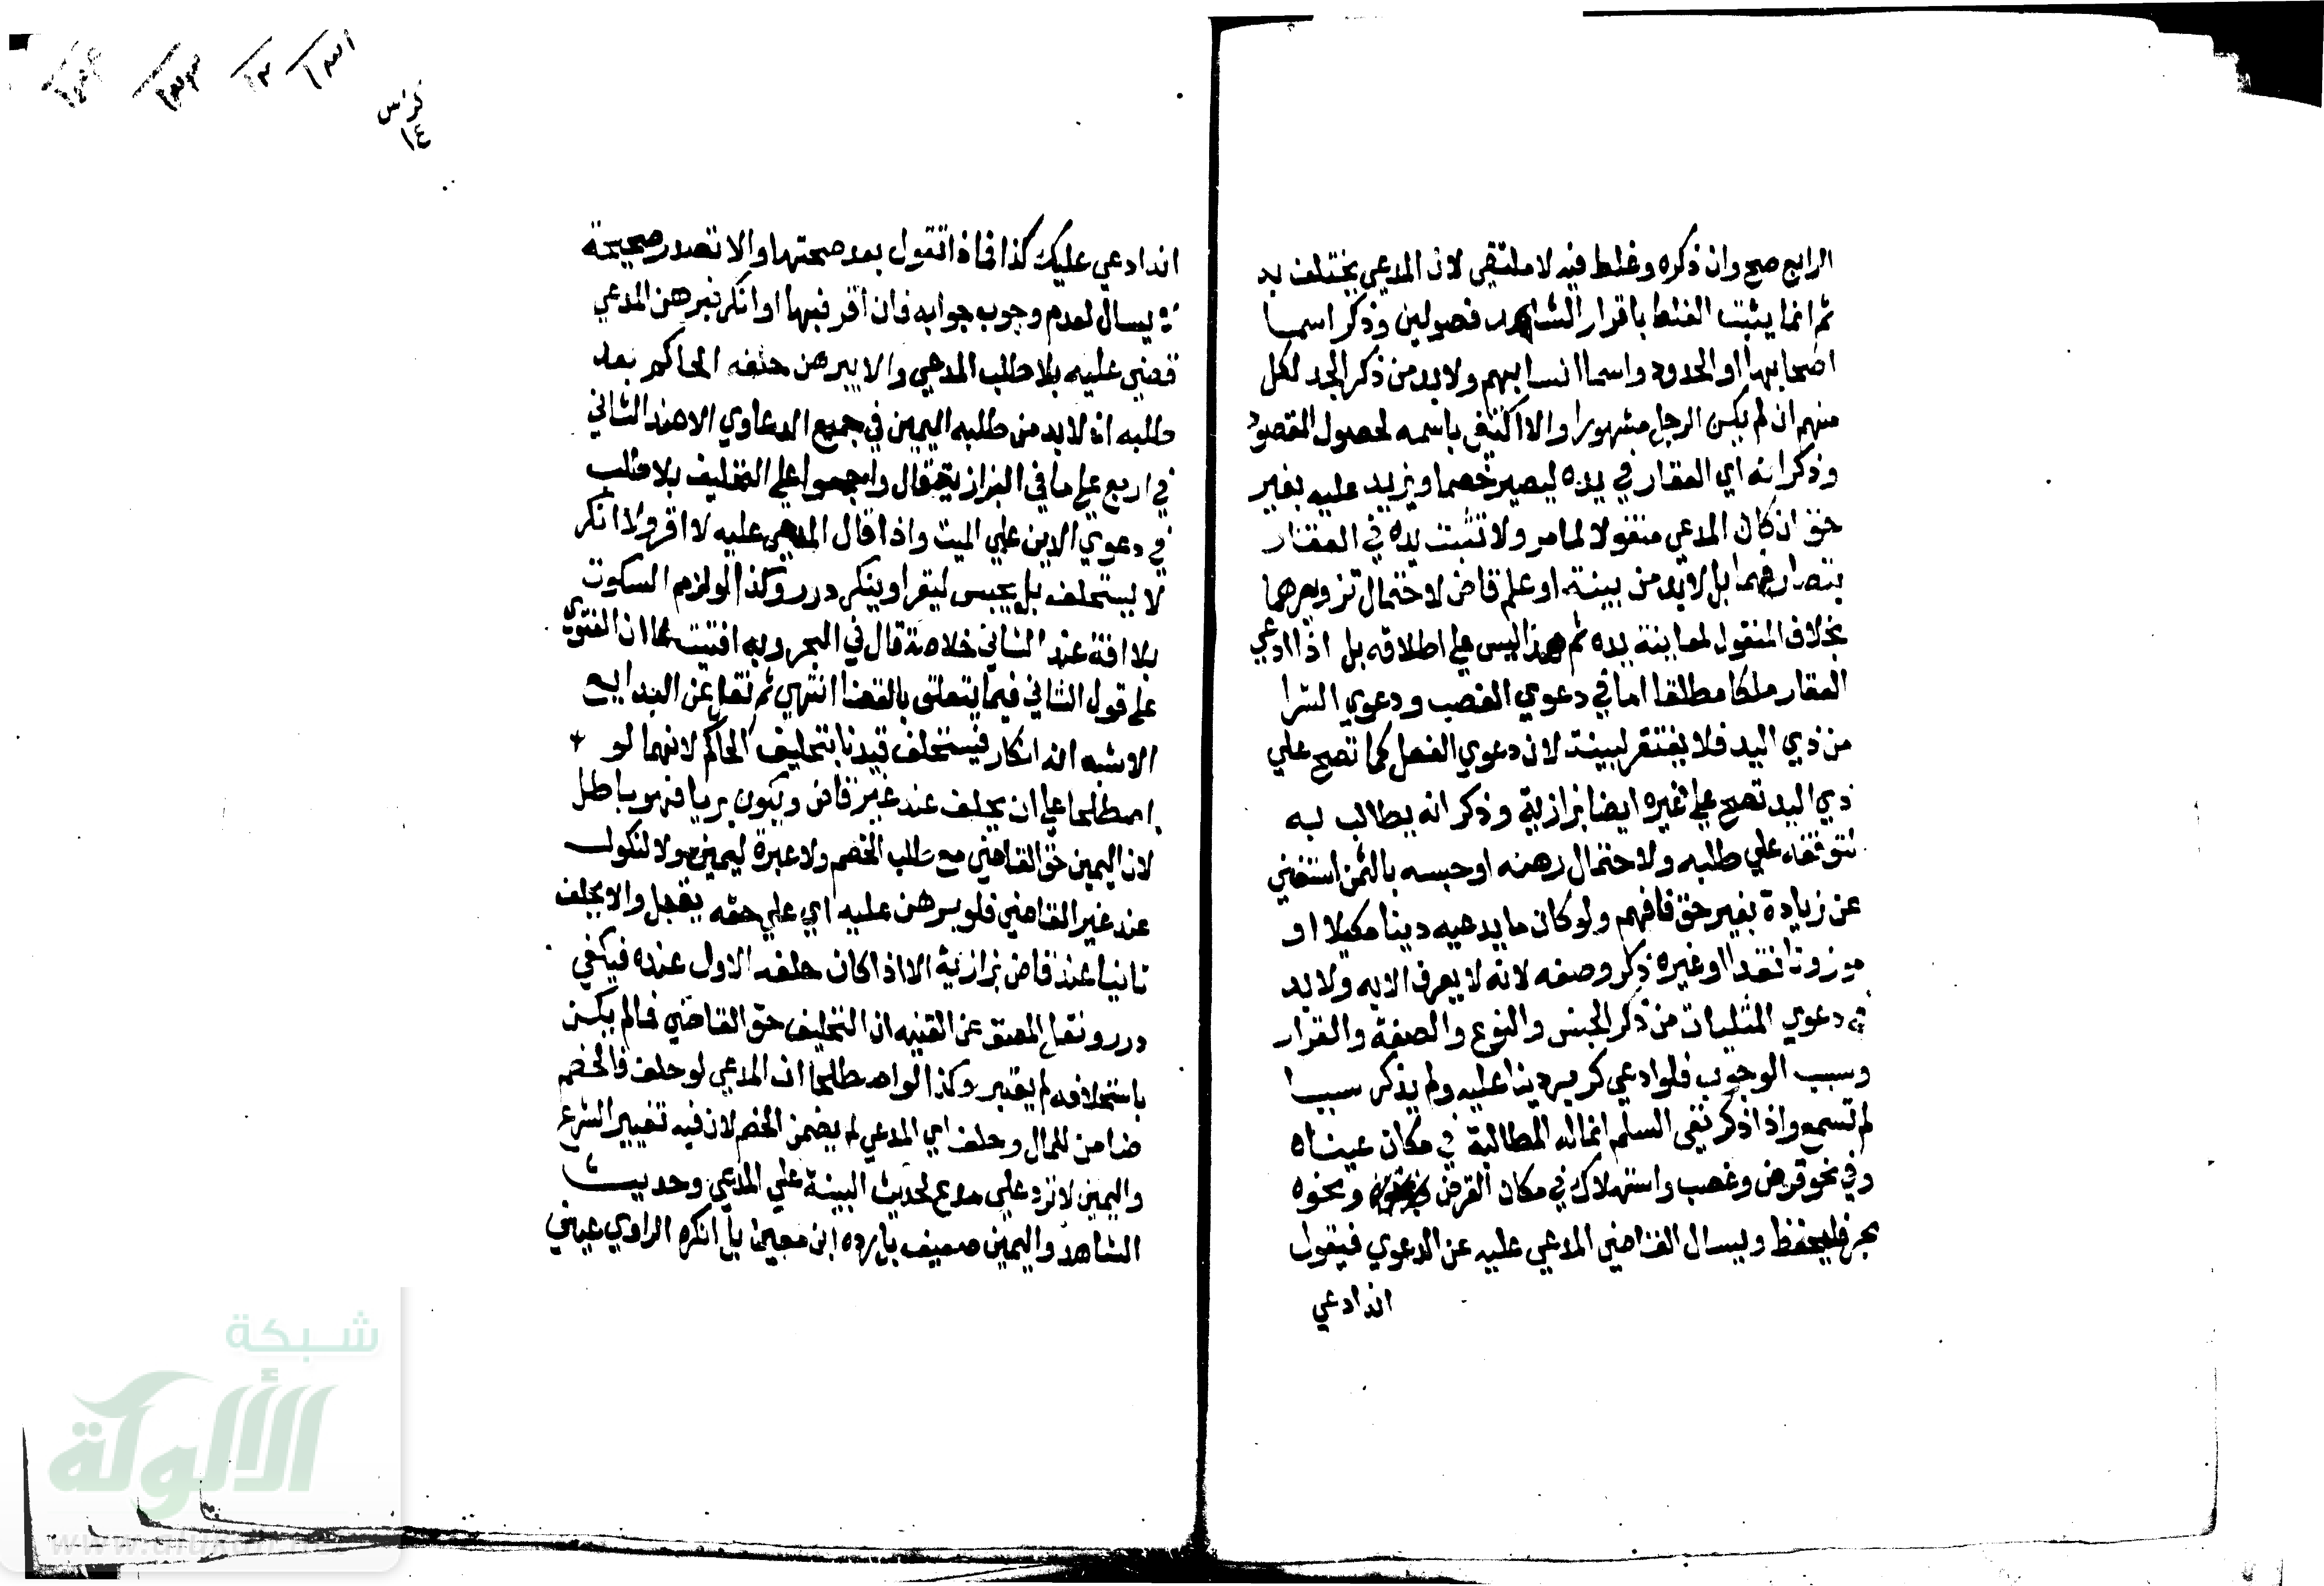 الرابع صح وان ذكره وغلط فيه لا ملتقي لان المدعي يختلف به
ثم انما يثبت الغلط باقرار الشاهد فصولين وذكر اسما
اصحابها او الحدود واسما انسابهم ولا بد من ذكر الجد لكل
منهم ان لم يكن الرجل مشهورا والا اكتفي باسمه لحصول المقصود
وذكر انه اي العقار في يده ليصير خصما ويزيد عليه بغير
حق ان كان المدعي منقولا لما مر ولا تثبت يده في العقار
بتصادقهما بل لا بد من بينة او علم قاض لاحتمال تزويرهما
بخلاف المنقول لمعاينة يده ثم هذا ليس علي اطلاقه بل اذا ادعي
العقار ملكا مطلقا اما في دعوي الغصب ودعوي الشرا
من ذي اليد فلا يفتقر لبينة لان دعوي الفعل كما تصح علي
ذي اليد تصح علي غيره ايضا بزازية وذكر انه يطالب به
لتوقفه علي طلبه ولاحتمال رهنه او حبسه بالثمن استغني
عن زيادة بغير حق فافهم ولو كان ما يدعيه دينا مكيلا او
موزونا نقدا او غيره ذكر وصفه لانه لا يعرف الا به ولا بد
في دعوي المثليات من ذكر الجنس والنوع والصفة والقدار
وسبب الوجوب فلو ادعي كر بر دينا عليه ولم يذكر سببا
لم تسمع واذا ذكر نفي السلم انما له المطالبة في مكان عيناه
وفي نحو قرض وغصب واستهلاك في مكان القرض ونحوه
بحر فليحفظ ويسال القاضي المدعي عليه عن الدعوي فيقول
انه ادعي
كرس
١٤
انه ادعي عليك كذا فماذا تقول بعد صحتها والا تصدر صحيحة
لا يسال لعدم وجوب جوابه فان اقر فبها او انكر فبرهن المدعي
قضي عليه بلا طلب المدعي والا يبرهن حلفه الحاكم بعد
طلبه اذ لا بد من طلبه اليمين في جميع الدعاوي الا عند الثاني
في اربع علي ما في البزازية قال واجمعوا علي التحليف بلا طلب
في دعوي الدين علي الميت واذا قال المدعي عليه لا اقر ولا انكر
لا يستحلف بل يحبس ليقر او ينكر درر وكذا لو لزم السكوت
بلا افة عند الثاني خلاصة قال في البحر وبه افتيت لما ان الفتوي
علي قول الثاني فيما يتعلق بالقضا انتهي ثم نقل عن البدايع
الاشبه انه انكار فيستحلف قيدنا بتحليف الحاكم لانهما لو
اصطلحا علي ان يحلف عند غير قاض ويكون بريا فهو باطل
لان اليمين حق القاضي مع طلب الخصم ولا عبرة ليمين ولا لنكول
عند غير القاضي فلو برهن عليه اي علي حقه يقبل والا يحلف
ثانيا عند قاض بزازية الا اذا كان حلفه الاول عنده فيكفي
درر ونقل المصنف عن القنيه ان التحليف حق القاضي فما لم يكن
باستحلافه لم يعتبر وكذا لو اصطلحا ان المدعي لو حلف فالخصم
ضامن للمال وحلف اي المدعي لم يضمن الخصم لان فيه تغيير الشرع
واليمين لا ترد علي مدع لحديث البينة علي المدعي وحديث
الشاهد واليمين ضعيف بل رده ابن معين بل انكره الراوي عيني
شبكة
الألوكة